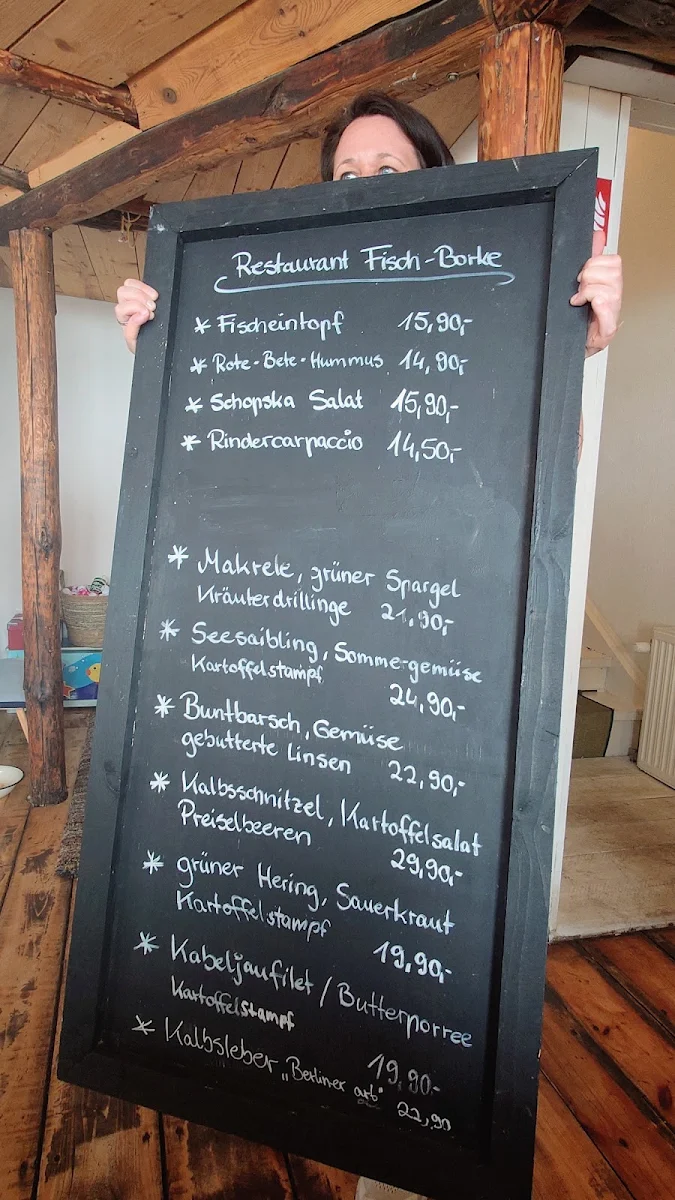 Restaurant Fisch-Borke
* Fischeintopf 15,90,-
* Rote-Bete-Hummus 14,90,-
* Schopska Salat 15,90,-
* Rindercarpaccio 14,50,-
* Makrele, grüner Spargel
Kräuterdrillinge 21,90,-
* Seesaibling, Sommergemüse
Kartoffelstampf 24,90,-
* Buntbarsch, Gemüse
gebutterte Linsen 22,90,-
* Kalbsschnitzel, Kartoffelsalat
Preiselbeeren 29,90,-
* grüner Hering, Sauerkraut
Kartoffelstampf 19,90,-
* Kabeljaufilet / Butterporree
Kartoffelstampf 19,90,-
* Kalbsleber „Berliner art" 22,90